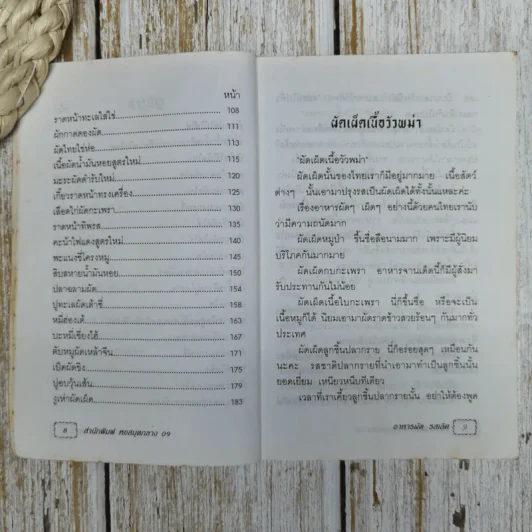 หน้า
ราดหน้าทะเลใส่ไข่ 108
ผักกาดดองผัด 111
ผัดไทยไข่ห่อ 113
เนื้อผัดน้ำมันหอยสูตรใหม่ 115
มะระผัดตำรับใหม่ 120
เกี้ยวราดหน้าทรงเครื่อง 125
เลือดไก่ผัดกะเพรา 130
ราดหน้าทิพรส 135
คะน้าไฟแดงสูตรใหม่ 140
พะแนงซี่โครงหมู 145
สิบสหายน้ำมันหอย 150
ปลาฉลามผัด 154
ปูทะเลผัดเต้าซี่ 158
หมี่ฮ่องเต้ 163
บะหมี่เซี่ยงไฮ้ 167
ตับหมูผัดเหล้าจีน 171
เป็ดผัดขิง 175
ปูอบวุ้นเส้น 179
งูเห่าผัดเผ็ด 183
8 สำนักพิมพ์ หอสมุดกลาง 09
ผัดเผ็ดเนื้อวัวพม่า
"ผัดเผ็ดเนื้อวัวพม่า"
ผัดเผ็ดนั้นของไทยเราก็มีอยู่มากมาย เนื้อสัตว์
ต่างๆ นั้นเอามาปรุงรสเป็นผัดเผ็ดได้ทั้งนั้นแหละค่ะ
เรื่องอาหารผัดๆ เผ็ดๆ อย่างนี้ด้วยคนไทยเรานับ
ว่ามีความถนัดมาก
ผัดเผ็ดหมูป่า ขึ้นชื่อลือนามมาก เพราะมีผู้นิยม
บริโภคกันมากมาย
ผัดเผ็ดกบกะเพรา อาหารจานเด็ดนี้ก็มีผู้สั่งมา
รับประทานกันไม่น้อย
ผัดเผ็ดเนื้อใบกะเพรา นี่ก็ขึ้นชื่อ หรือจะเป็น
เนื้อหมูก็ได้ นิยมเอามาผัดราดข้าวสวยร้อนๆ กันมากทั่ว
ประเทศ
ผัดเผ็ดลูกชิ้นปลากราย นี่ก็อร่อยสุดๆ เหมือนกัน
นะคะ รสชาติปลากรายที่นำเอามาทำเป็นลูกชิ้นนั้น
ยอดเยี่ยม เหนียวหนึบทีเดียว
เวลาที่เราเคี้ยวลูกชิ้นปลากรายนั้น อย่าให้ต้องพูด
อาหารผัด รสเด็ด 9